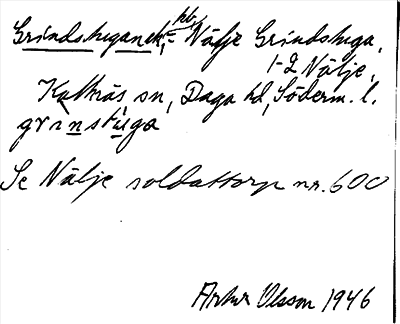 Grindstugan, hb, Nälje Grindstuga,
1-2 Nälje,
Kattnäs sn, Daga hd, Söderm. l.
grinstuga
Se Nälje soldattorp nr. 600
Artur Olsson 1946